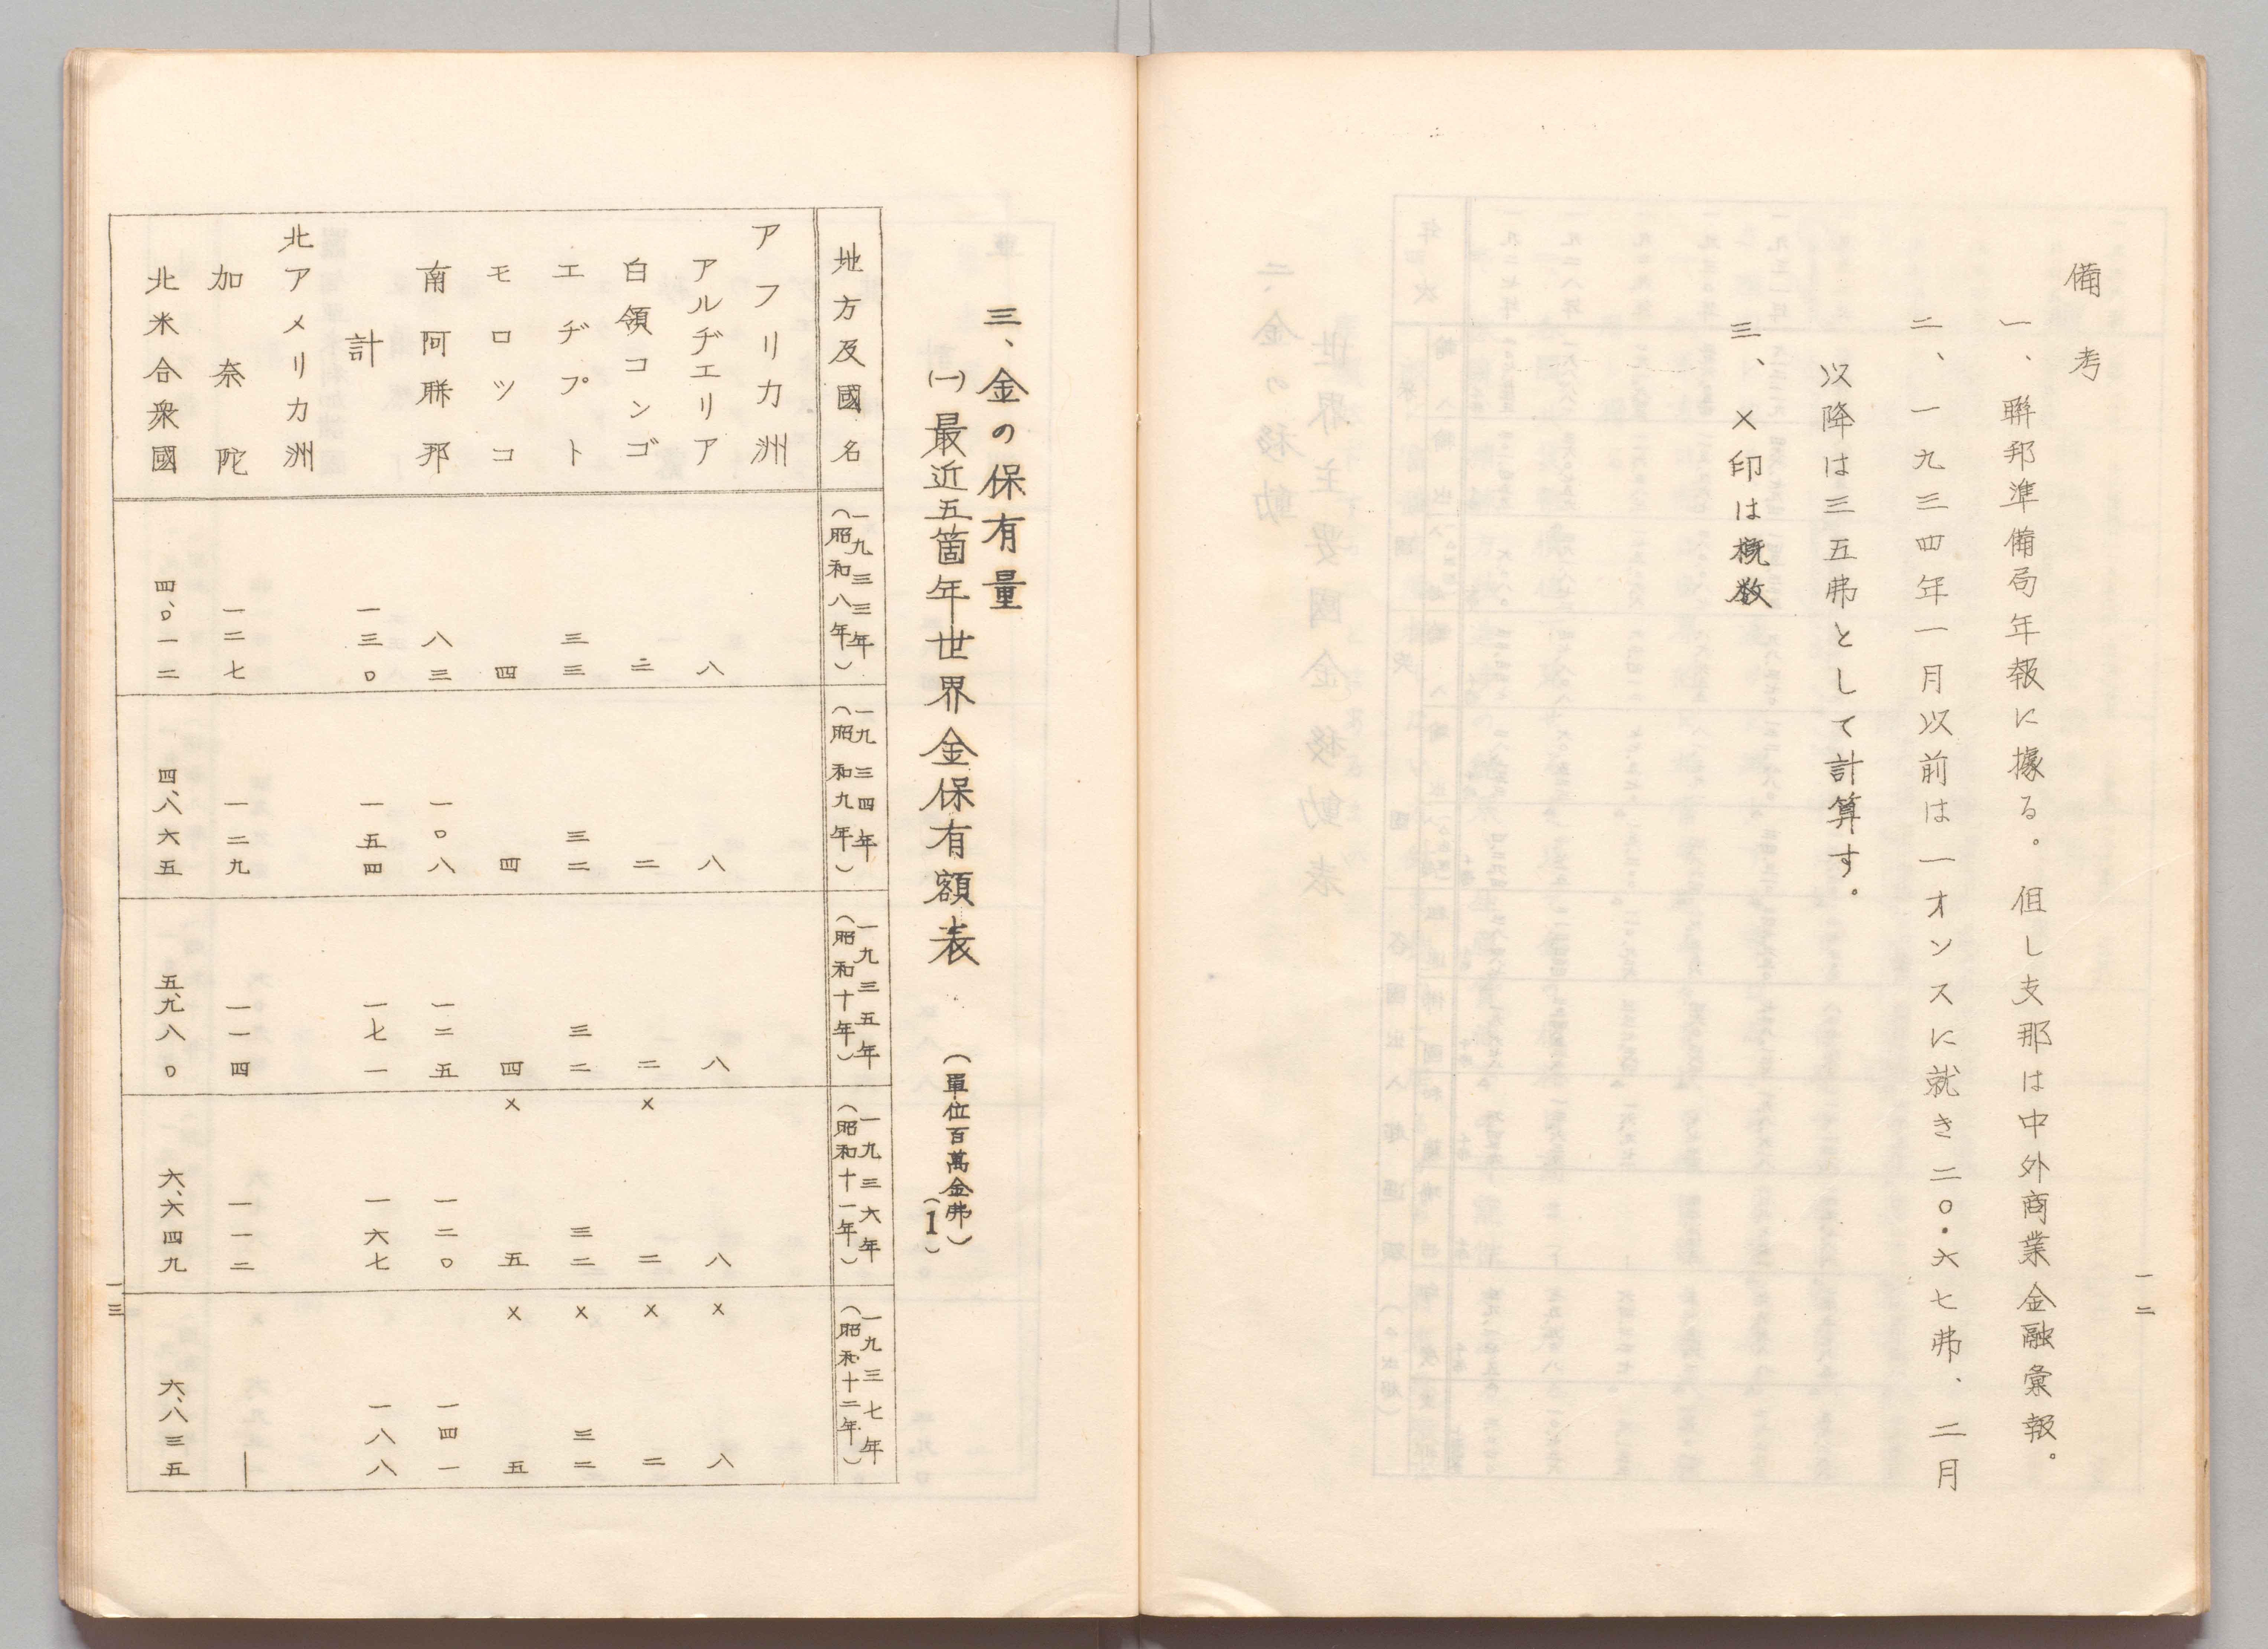 備考
一、聯邦準備局年報に據る。但し支那は中外商業金融彙報。
二、一九三四年一月以前は一オンスに就き二〇・六七弗、二月
以降は三五弗として計算す。
三、×印は概数
一二
三、金の保有量
㈠最近五箇年世界金保有額表 (單位百萬金弗)
(1)
地方及國名 一九三三年(昭和八年) 一九三四年(昭和九年) 一九三五年(昭和十年) 一九三六年(昭和十一年) 一九三七年(昭和十二年)
アフリカ洲
アルヂエリア 八 八 八 八 ×八
白領コンゴ 二 二 二 ×二 ×二
エヂプト 三三 三二 三二 三二 ×三二
モロツコ 四 四 四 ×五 ×五
南阿聯邦 八三 一〇八 一二五 一二〇 一四一
計 一三〇 一五四 一七一 一六七 一八八
北アメリカ洲
加奈陀 一二七 一二九 一一四 一一二 ―
北米合衆國 四、〇一二 四、八六五 五、九八〇 六、六四九 六、八三五
一三